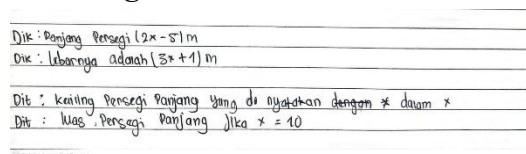 Dik : Panjang Persegi (2x - 5) m
Dik : lebarnya adalah (3x + 1) m
Dit : keliling Persegi Panjang yang di nyatakan dengan x dalam x
Dit : luas Persegi Panjang Jika x = 10